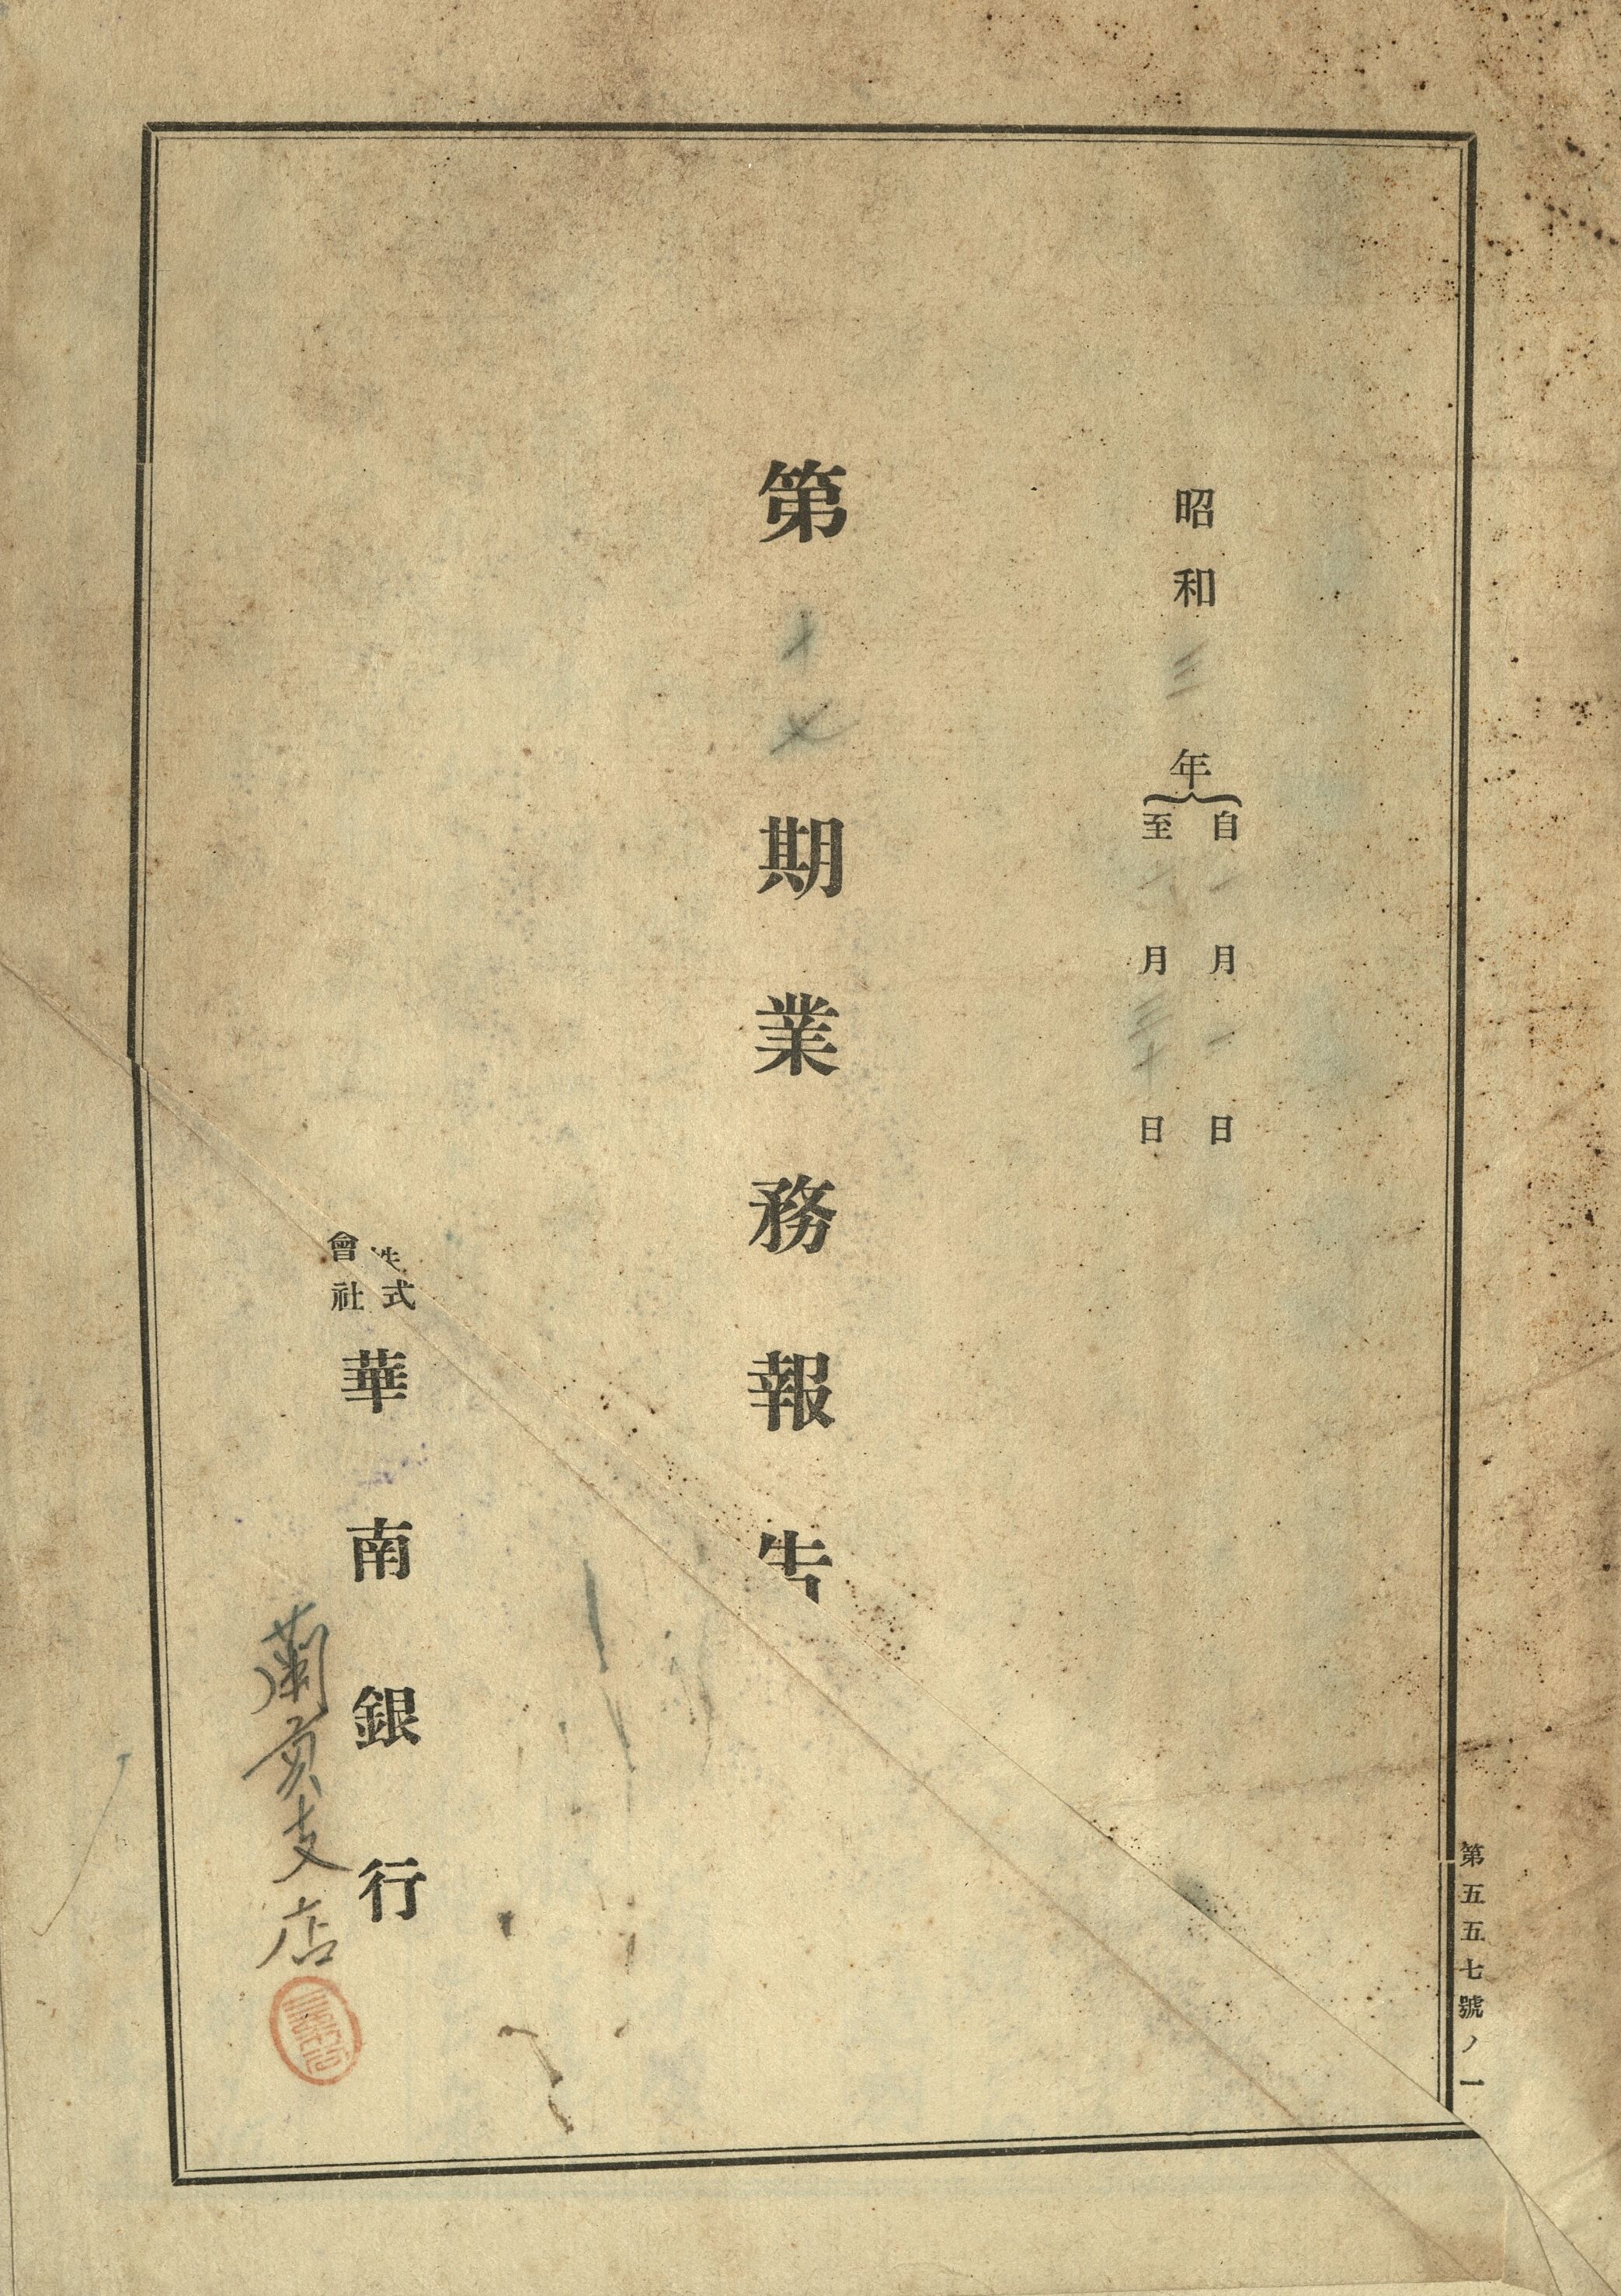 第五五七號ノ一
昭和三年
自一月一日
至六月三十日
第十七期業務報告
株式
會社
華南銀行
蘭貢支店